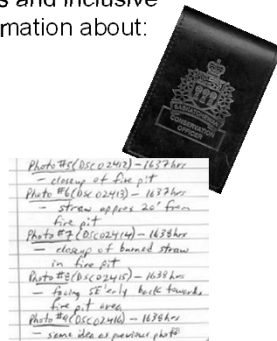 s and inclusive
mation about:
SASKATCHEWAN
CONSERVATION
OFFICER
Photo #5 (DSC02412) – 1637hrs
– closeup of fire pit
Photo #6 (DSC02413) – 1637hrs
– straw approx 20' from
fire pit
Photo #7 (DSC02414) – 1638hrs
– closeup of burned straw
in fire pit
Photo #8 (DSC02415) – 1638hrs
– facing SE'erly back towards
fire pit area
Photo #9 (DSC02416) – 1638hrs
– same idea as previous photo